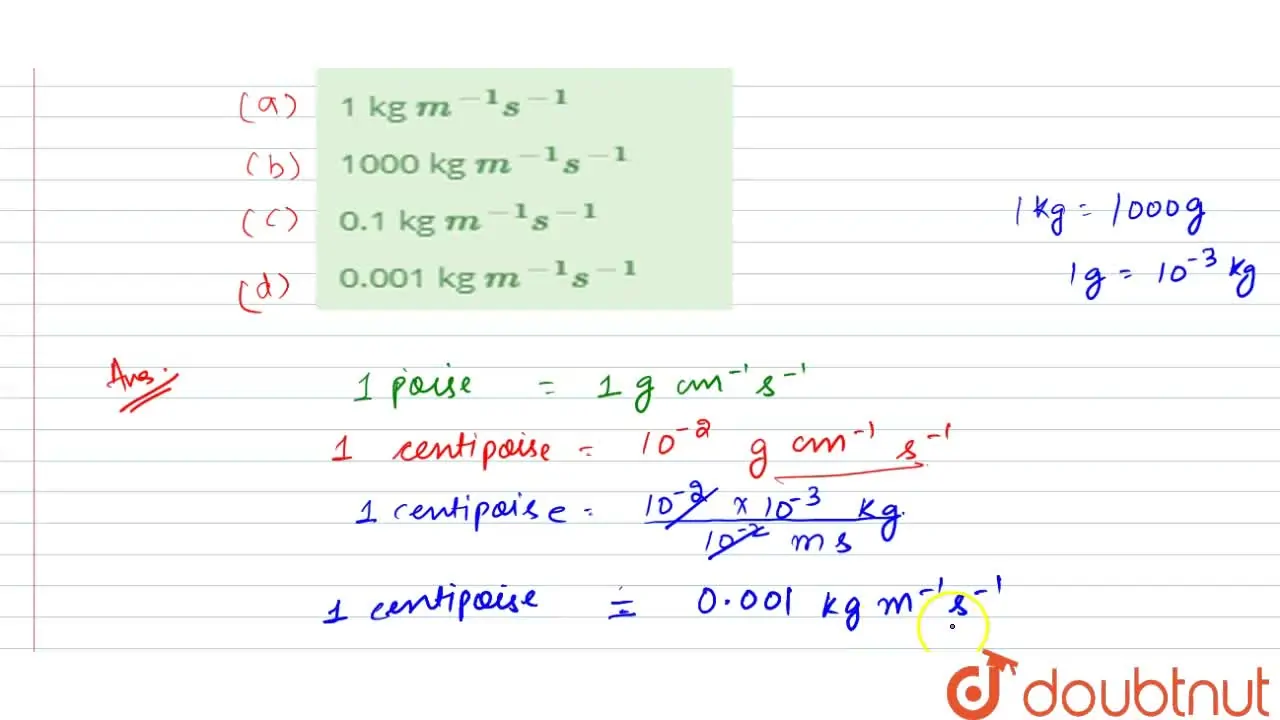 (a) 1 kg m⁻¹s⁻¹
(b) 1000 kg m⁻¹s⁻¹
(c) 0.1 kg m⁻¹s⁻¹
(d) 0.001 kg m⁻¹s⁻¹
1 kg = 1000g
1g = 10⁻³ kg
Ans.
1 poise = 1 g cm⁻¹ s⁻¹
1 centipoise = 10⁻² g cm⁻¹ s⁻¹
1 centipoise = 10⁻² x 10⁻³ kg
10⁻² m s
1 centipoise = 0.001 kg m⁻¹ s⁻¹
doubtnut